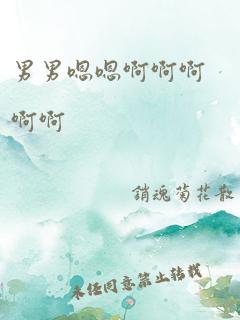 男男嗯嗯啊啊啊
啊啊
銷魂菊花散
未经同意禁止转载